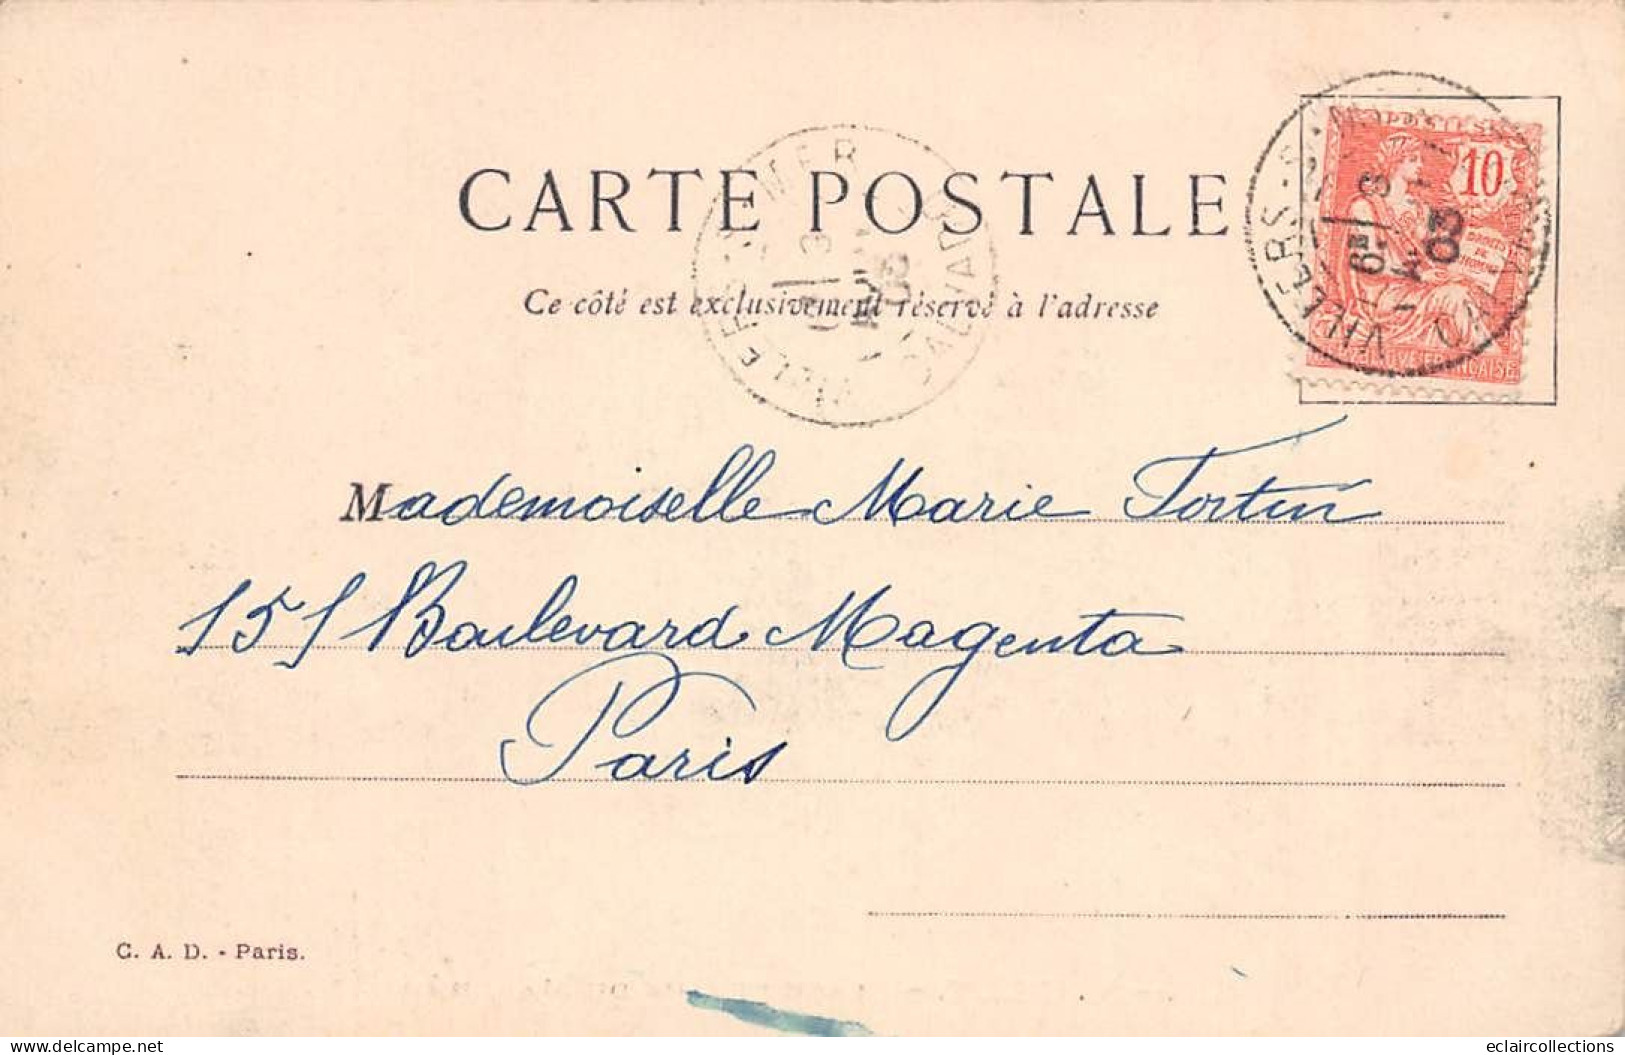 CARTE POSTALE
Ce côté est exclusivement réservé à l'adresse
10
VILLERS-S-MER
CALVADOS
03
VILLERS-S-MER
03
Mademoiselle Marie Fortin
151 Boulevard Magenta
Paris
C. A. D. - Paris.
www.delcampe.net
eclaircollections